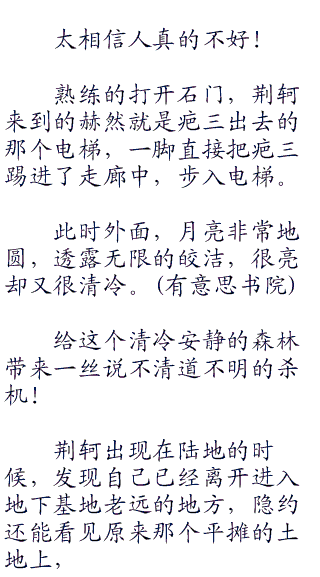 太相信人真的不好！
熟练的打开石门，荆轲
来到的赫然就是疤三出去的
那个电梯，一脚直接把疤三
踢进了走廊中，步入电梯。
此时外面，月亮非常地
圆，透露无限的皎洁，很亮
却又很清冷。(有意思书院)
给这个清冷安静的森林
带来一丝说不清道不明的杀
机！
荆轲出现在陆地的时
候，发现自己已经离开进入
地下基地老远的地方，隐约
还能看见原来那个平摊的土
地上，